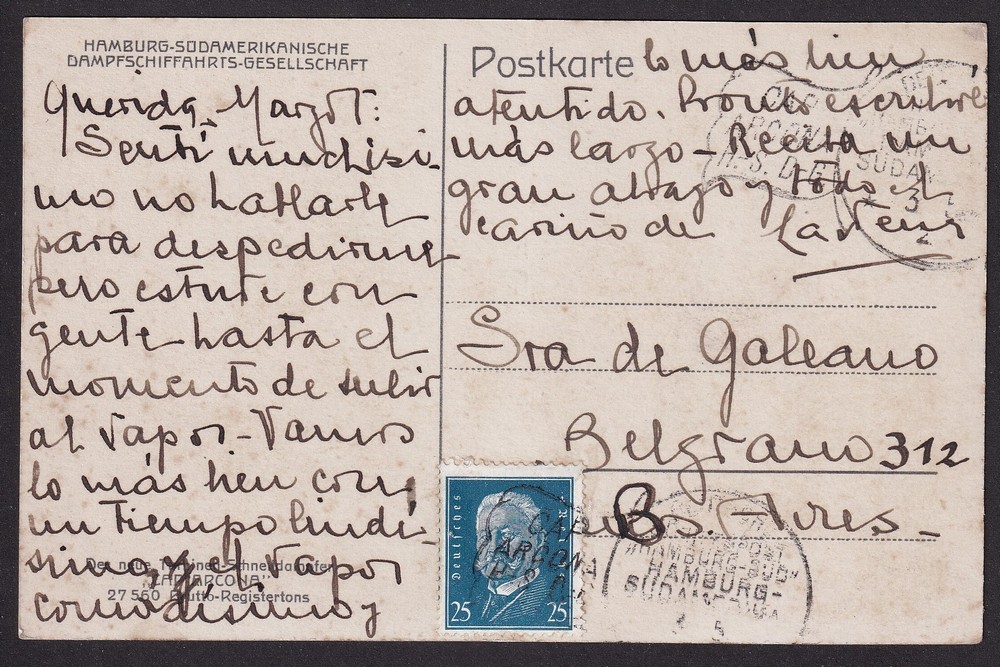 HAMBURG-SÜDAMERIKANISCHE
DAMPFSCHIFFAHRTS-GESELLSCHAFT
Querida Margot:
Sentí muchísi-
mo no hablarte
para despedirme
pero estuve con
gente hasta el
momento de subir
al vapor - Vamos
lo más bien con
un tiempo lindí-
simo y el vapor
comodísimo y
Der neue Schnelldampfer
"CAP ARCONA"
27 560 Brutto-Registertons
Postkarte
lo más bien
atentido. Pronto escribiré
más largo - Reciba un
gran abrazo y todo el
cariño de
Sra de Galeano
Belgrano 312
Bs. Aires -
Deutsches
25 25
CAP
ARCONA
H. S. D. G.
SÜDAM
3
2
CAP
ARCONA
"HAMBURG-SÜD"
HAMBURG-
SÜDAMERIKA